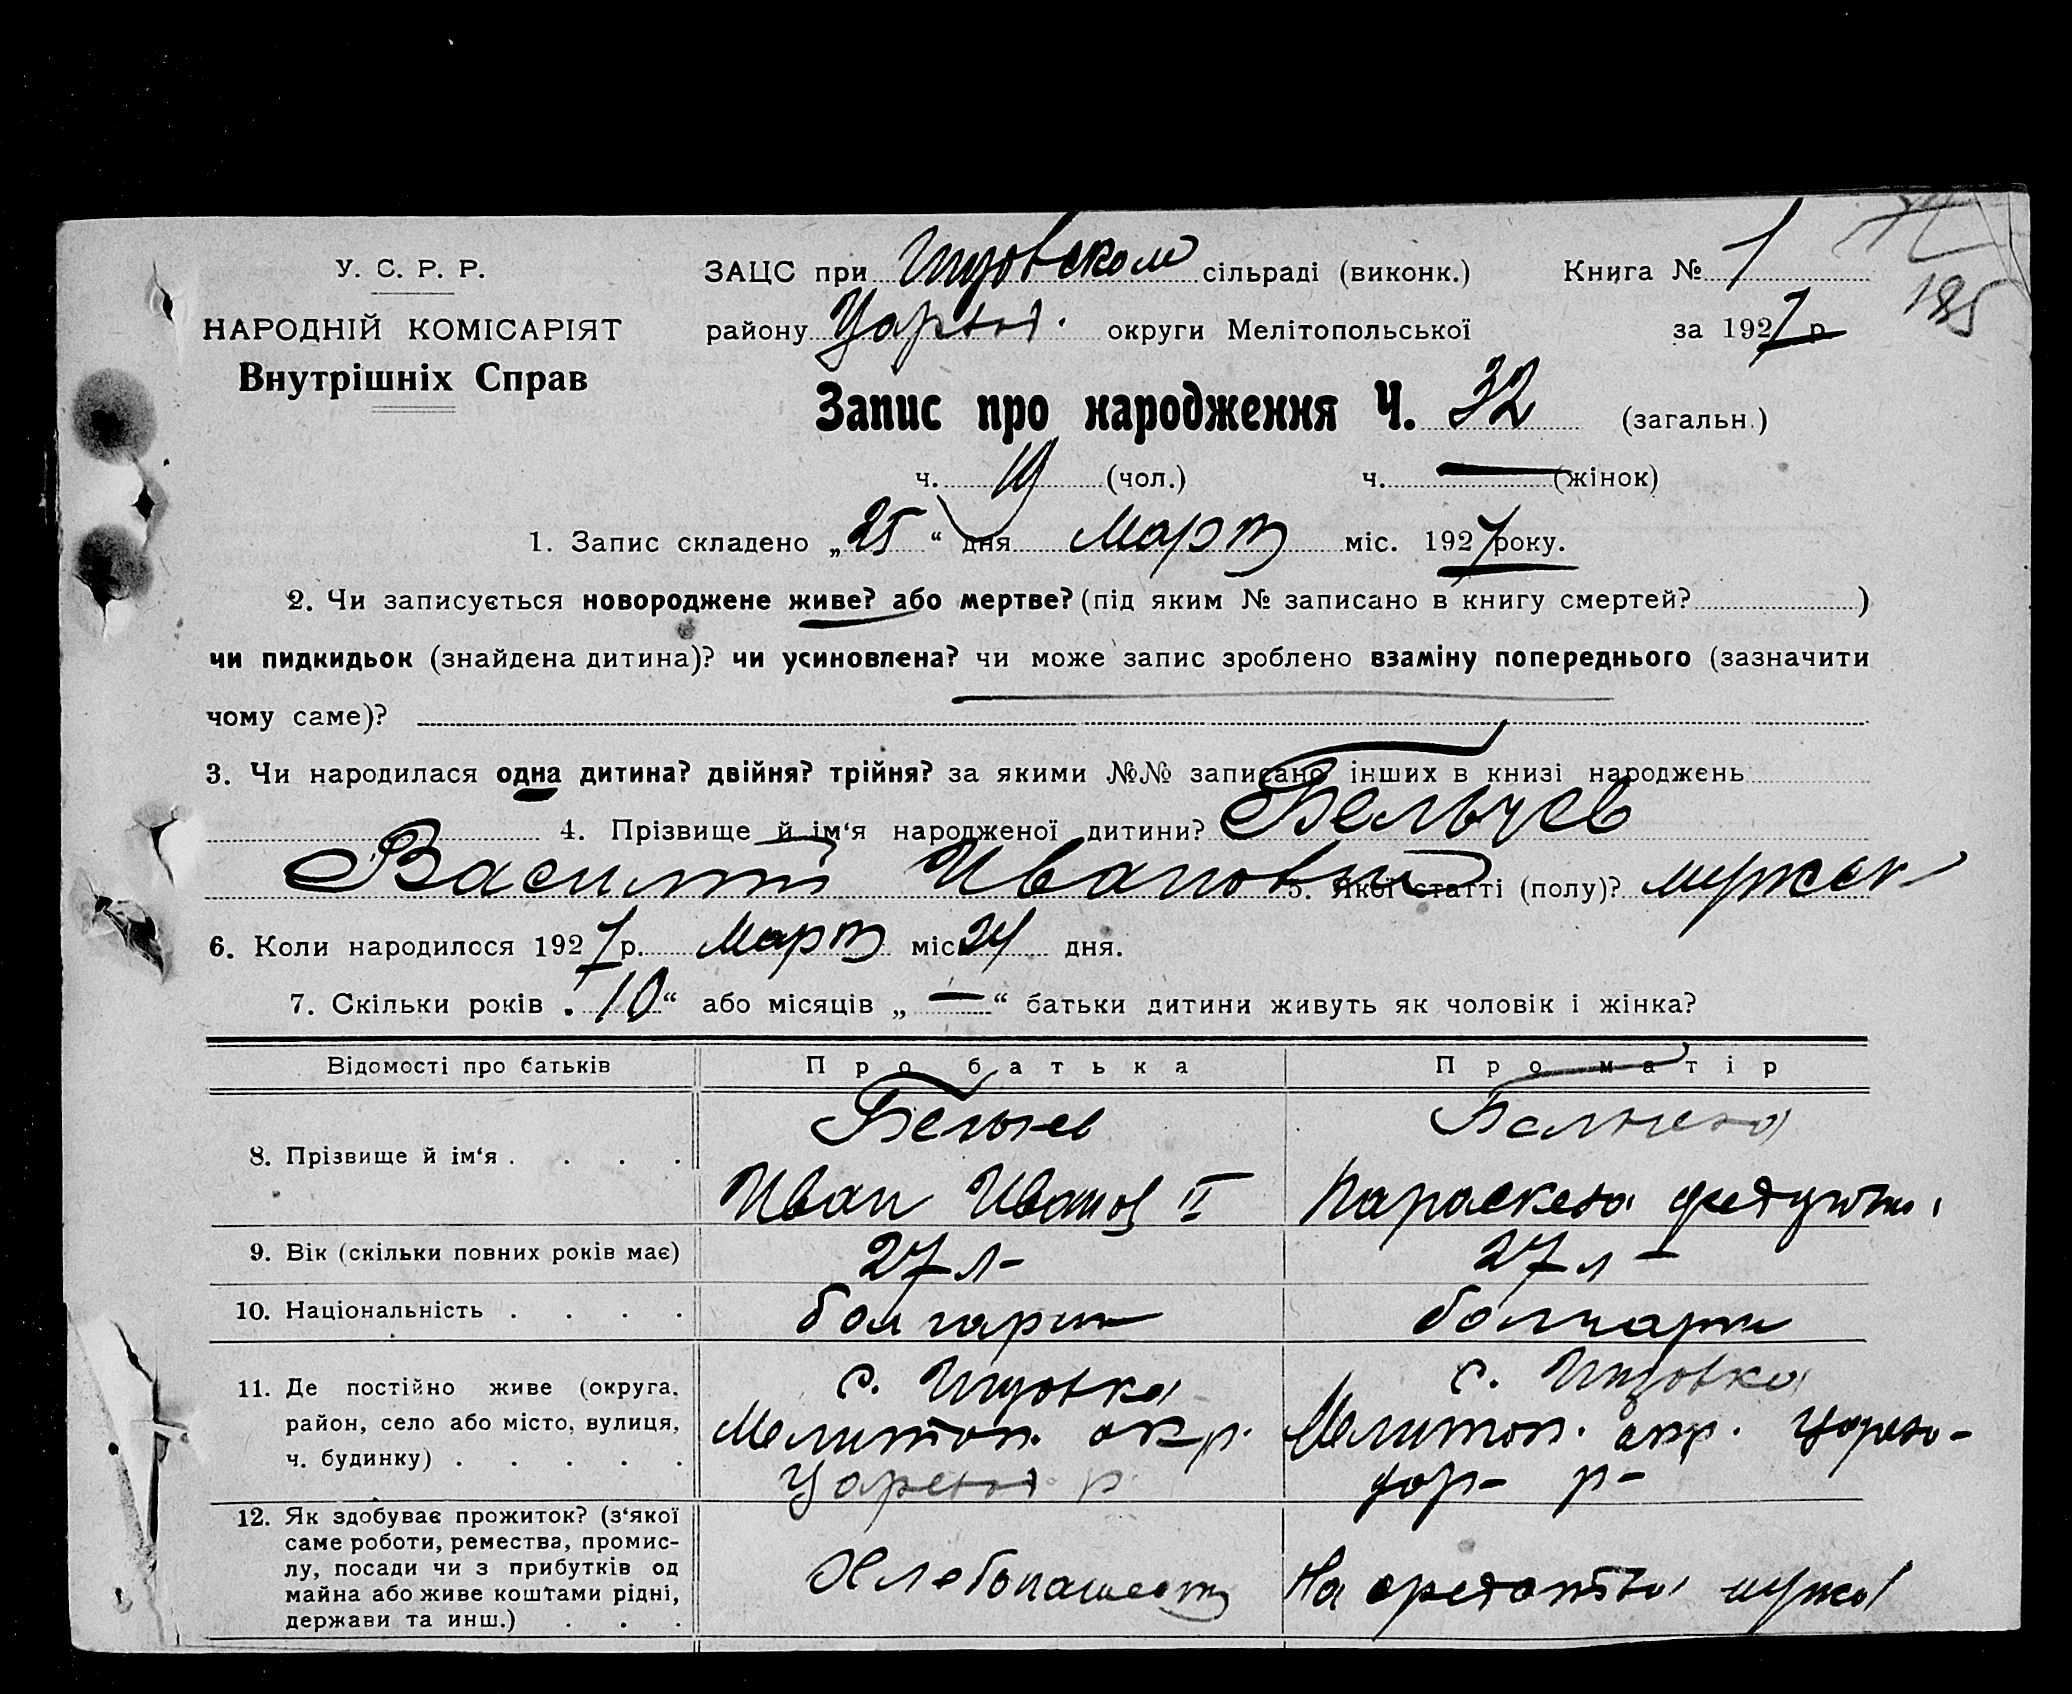 У. С. Р. Р.
НАРОДНІЙ КОМІСАРІЯТ
Внутрішніх Справ
ЗАЦС при сільраді (виконк.) Книга № 1
185
району Царев. округи Мелітопольської за 1927 р.
Запис про народження Ч. 32 (загальн.)
ч. 19 (чол.) ч. — (жінок)
1. Запис складено „25“ дня Март міс. 1927 року.
2. Чи записується новороджене живе? або мертве? (під яким № записано в книгу смертей? )
чи пидкидьок (знайдена дитина)? чи усиновлена? чи може запис зроблено взаміну попереднього (зазначити
чому саме)?
3. Чи народилася одна дитина? двійня? трійня? за якими №№ записано інших в книзі народжень
4. Прізвище й ім‘я народженої дитини? Бельчев
Василий Иванович 5. Якої статті (полу)? мужск
6. Коли народилося 1927 р. Март міс 24 дня.
7. Скільки років „10“ або місяців „—“ батьки дитини живуть як чоловік і жінка?
Відомості про батьків Про батька Про матір
8. Прізвище й ім‘я . . . . Бельчев Иван Иванов II Бельчева Параскева
9. Вік (скільки повних років має) 27 л- 27 л-
10. Національність . . . . болгарин болгарка
11. Де постійно живе (округа,
район, село або місто, вулиця,
ч. будинку) . . . . .
с. Инзовка
Мелитоп. окр.
Царев. р.
с. Инзовка
Мелитоп. окр. Царево-
дар- р-
12. Як здобуває прожиток? (з‘якої
саме роботи, ремества, промис-
лу, посади чи з прибутків од
майна або живе коштами рідні,
держави та инш.) . . .
Хлебопашест
На средства мужа